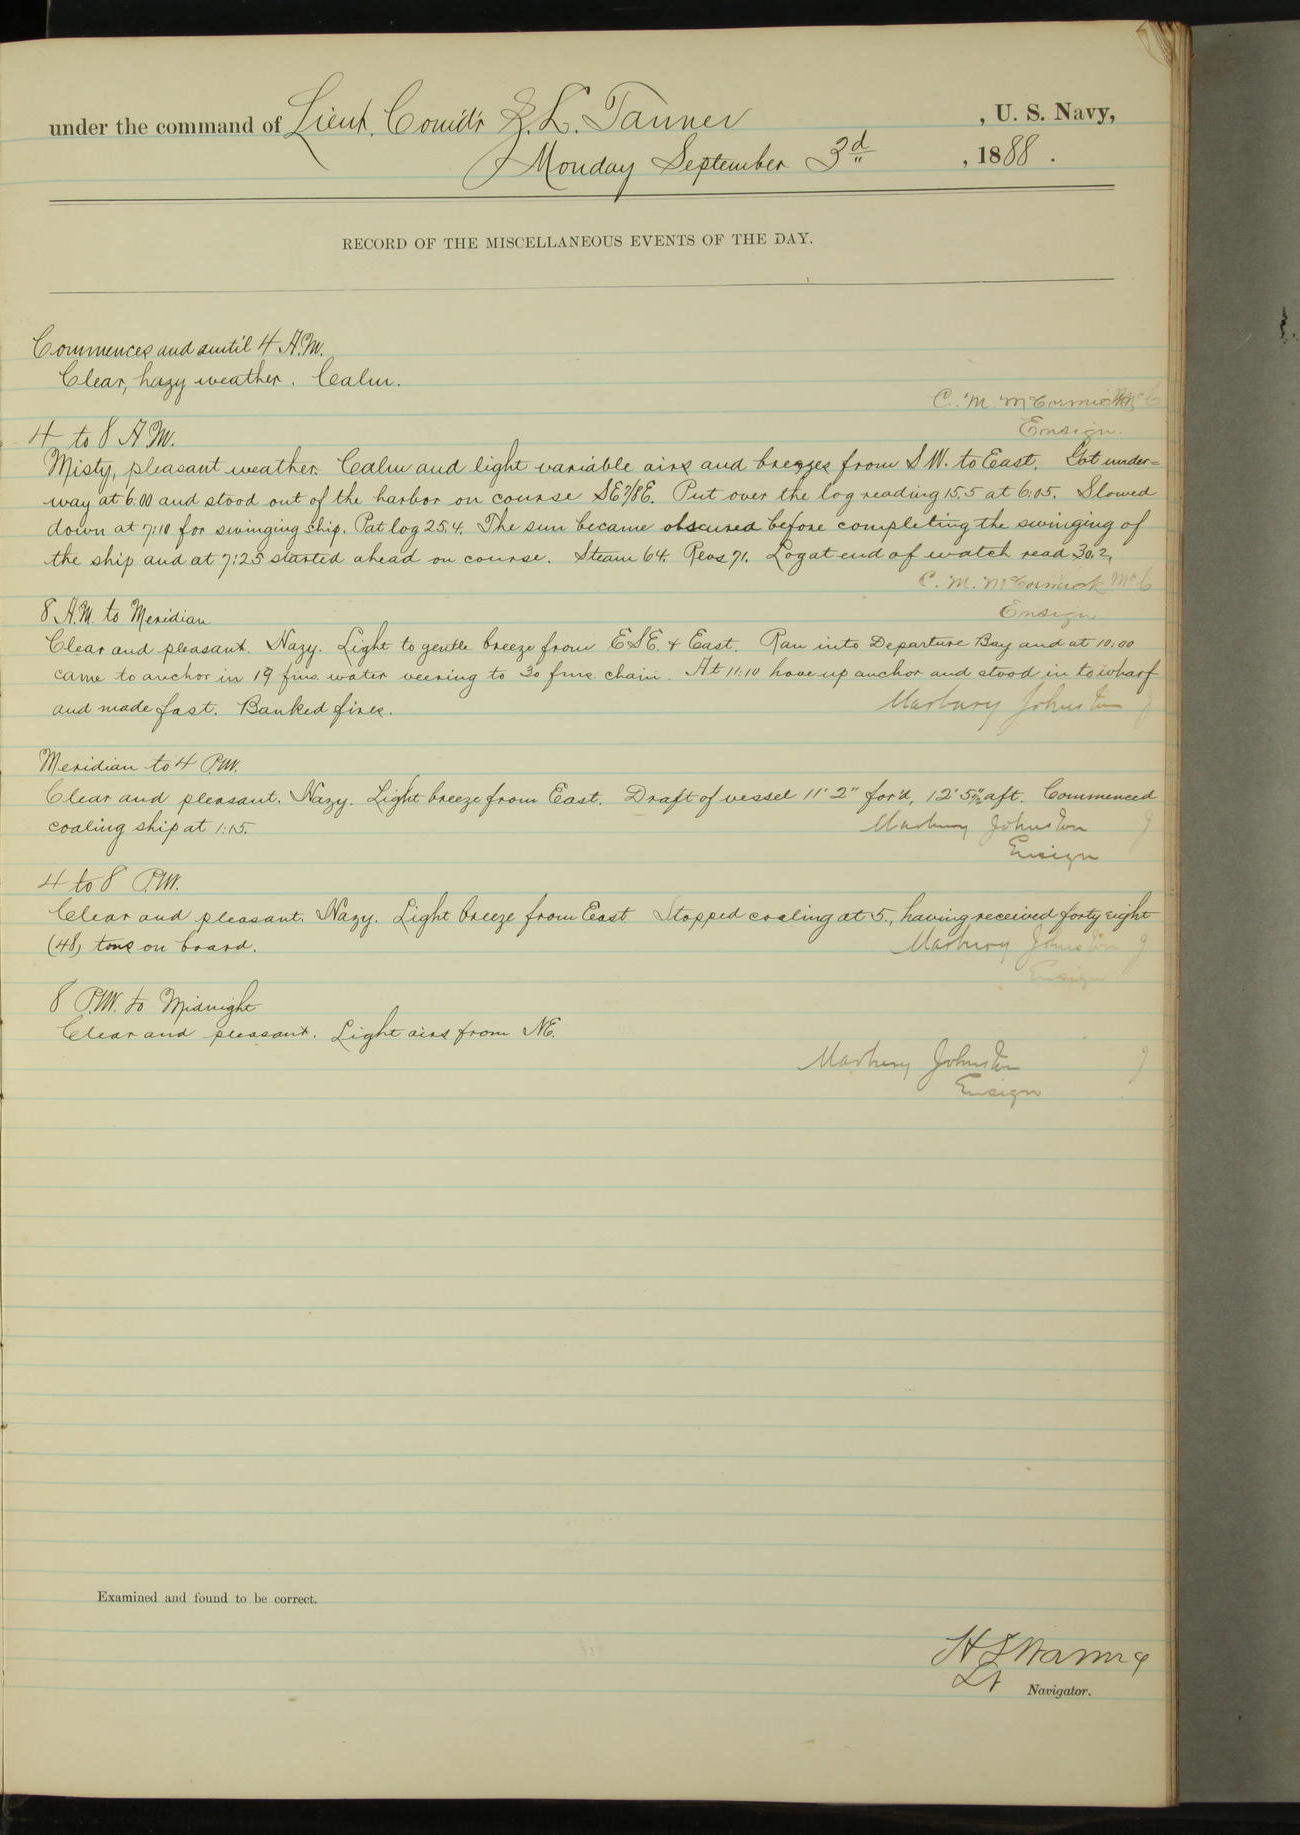 under the command of Lieut. Comd'r Z. L. Tanner, U. S. Navy,
Monday September 3d, 1888.
RECORD OF THE MISCELLANEOUS EVENTS OF THE DAY.
Commences and until 4 A.M.
Clear, hazy weather. Calm.
C. M. McCormick McC
Ensign.
4 to 8 A.M.
Misty, pleasant weather. Calm and light variable airs and breezes from S.W. to East. Got under=
way at 6:00 and stood out of the harbor on course SE 7/8 E. Put over the log reading 15.5 at 6:05. Slowed
down at 7:10 for swinging ship. Pat log 25.4. The sun became obscured before completing the swinging of
the ship and at 7:25 started ahead on course. Steam 64. Revs 71. Log at end of watch read 30.2,
C. M. McCormick McC
Ensign
8 A.M. to Meridian
Clear and pleasant. Hazy. Light to gentle breeze from ESE. & East. Ran into Departure Bay and at 10:00
came to anchor in 19 fms. water veering to 30 fms. chain. At 11:10 hove up anchor and stood in to wharf
and made fast. Banked fires.
Marbury Johnston J
Meridian to 4 P.M.
Clear and pleasant. Hazy. Light breeze from East. Draft of vessel 11' 2" for'd, 12' 5½" aft. Commenced
coaling ship at 1:15.
Marbury Johnston J
Ensign
4 to 8 P.M.
Clear and pleasant. Hazy. Light breeze from East Stopped coaling at 5., having received forty eight
(48) tons on board.
Marbury Johnston J
Ensign
8 P.M. to Midnight
Clear and pleasant. Light airs from NE.
Marbury Johnston J
Ensign
Examined and found to be correct.
Lt
Navigator.